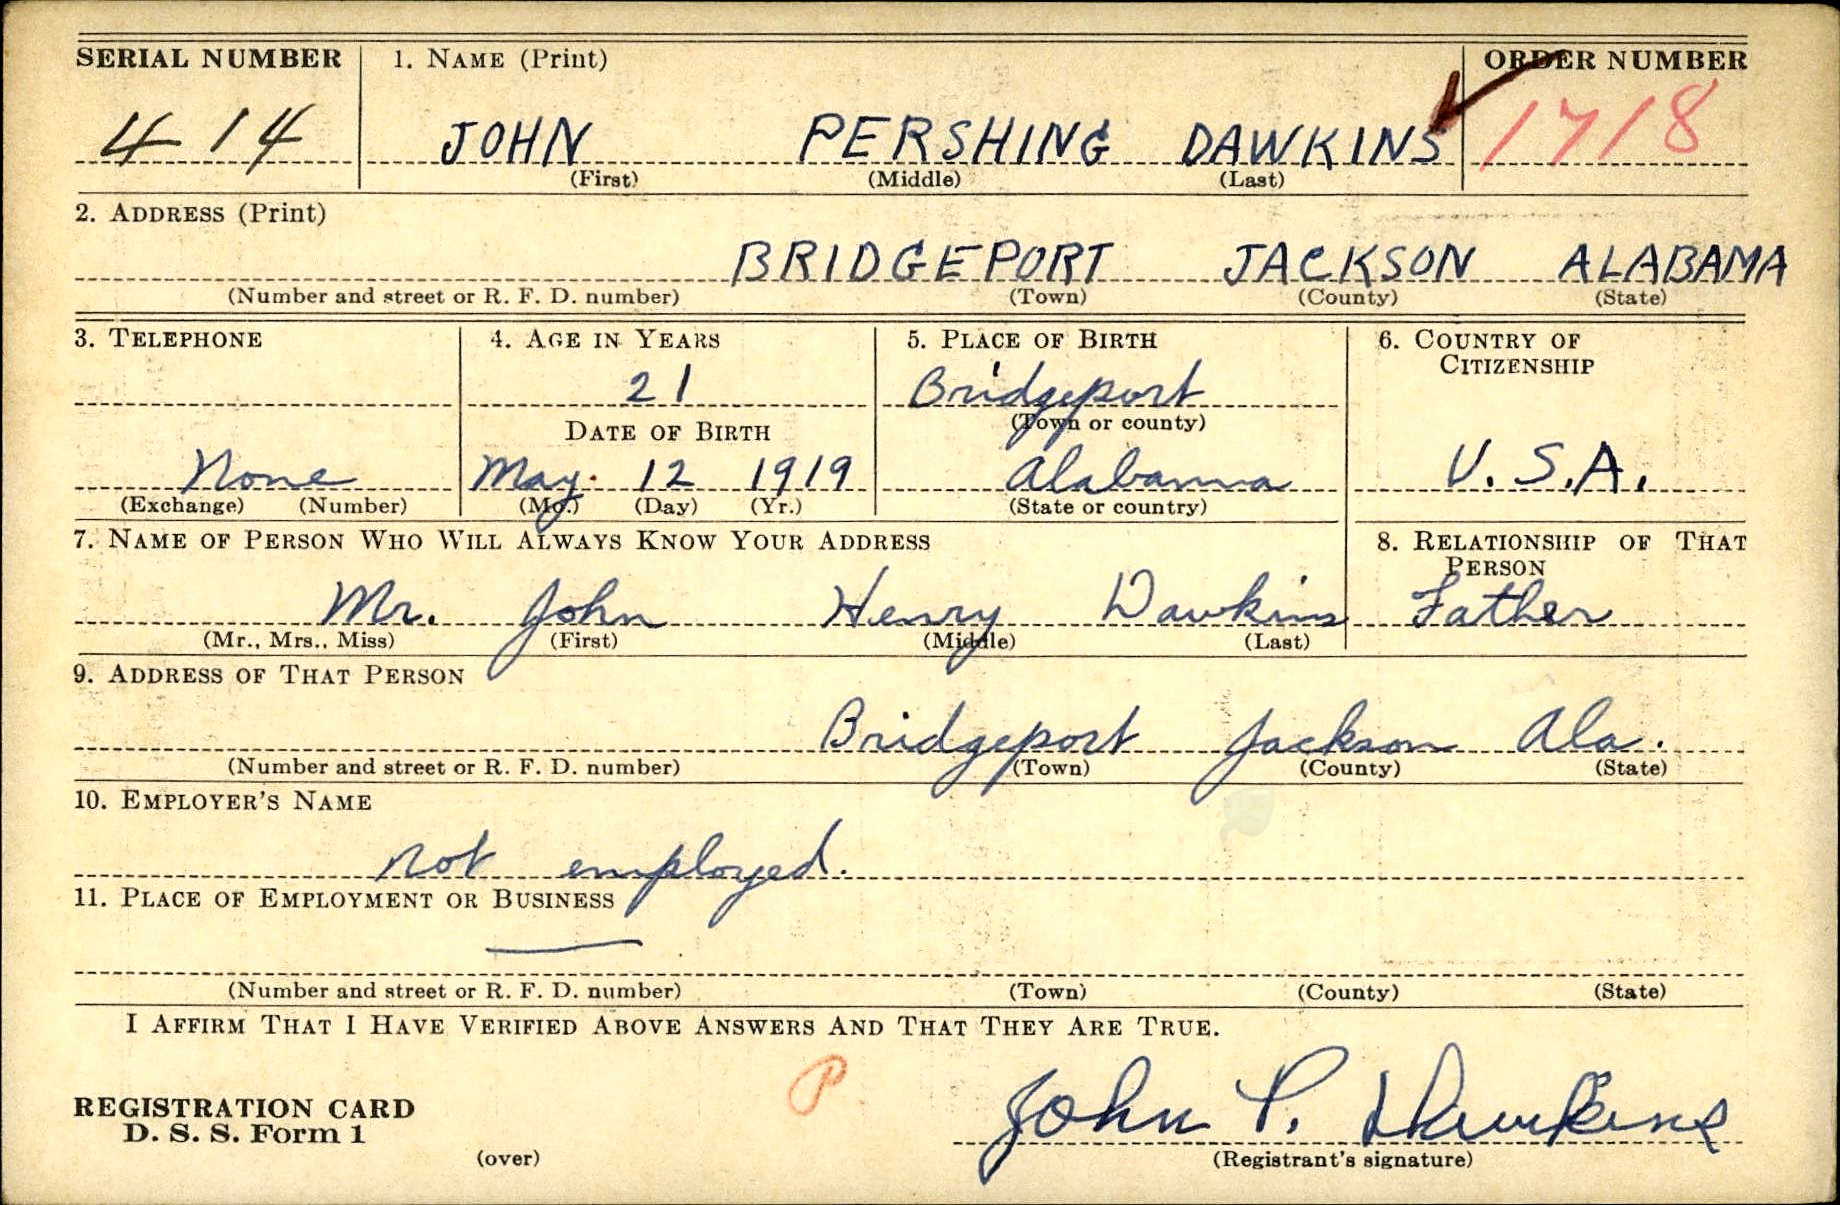 SERIAL NUMBER 1. NAME (Print) ORDER NUMBER
414 JOHN PERSHING DAWKINS 1718
(First) (Middle) (Last)
2. ADDRESS (Print)
BRIDGEPORT JACKSON ALABAMA
(Number and street or R. F. D. number) (Town) (County) (State)
3. TELEPHONE 4. AGE IN YEARS 5. PLACE OF BIRTH 6. COUNTRY OF
CITIZENSHIP
21 Bridgeport
DATE OF BIRTH (Town or county)
None May. 12 1919 Alabama U.S.A.
(Exchange) (Number) (Mo.) (Day) (Yr.) (State or country)
7. NAME OF PERSON WHO WILL ALWAYS KNOW YOUR ADDRESS 8. RELATIONSHIP OF THAT
PERSON
Mr. John Henry Dawkins Father
(Mr., Mrs., Miss) (First) (Middle) (Last)
9. ADDRESS OF THAT PERSON
Bridgeport Jackson Ala.
(Number and street or R. F. D. number) (Town) (County) (State)
10. EMPLOYER'S NAME
Not employed.
11. PLACE OF EMPLOYMENT OR BUSINESS
—
(Number and street or R. F. D. number) (Town) (County) (State)
I AFFIRM THAT I HAVE VERIFIED ABOVE ANSWERS AND THAT THEY ARE TRUE.
P
REGISTRATION CARD John P. Dawkins
D. S. S. Form 1
(over) (Registrant's signature)